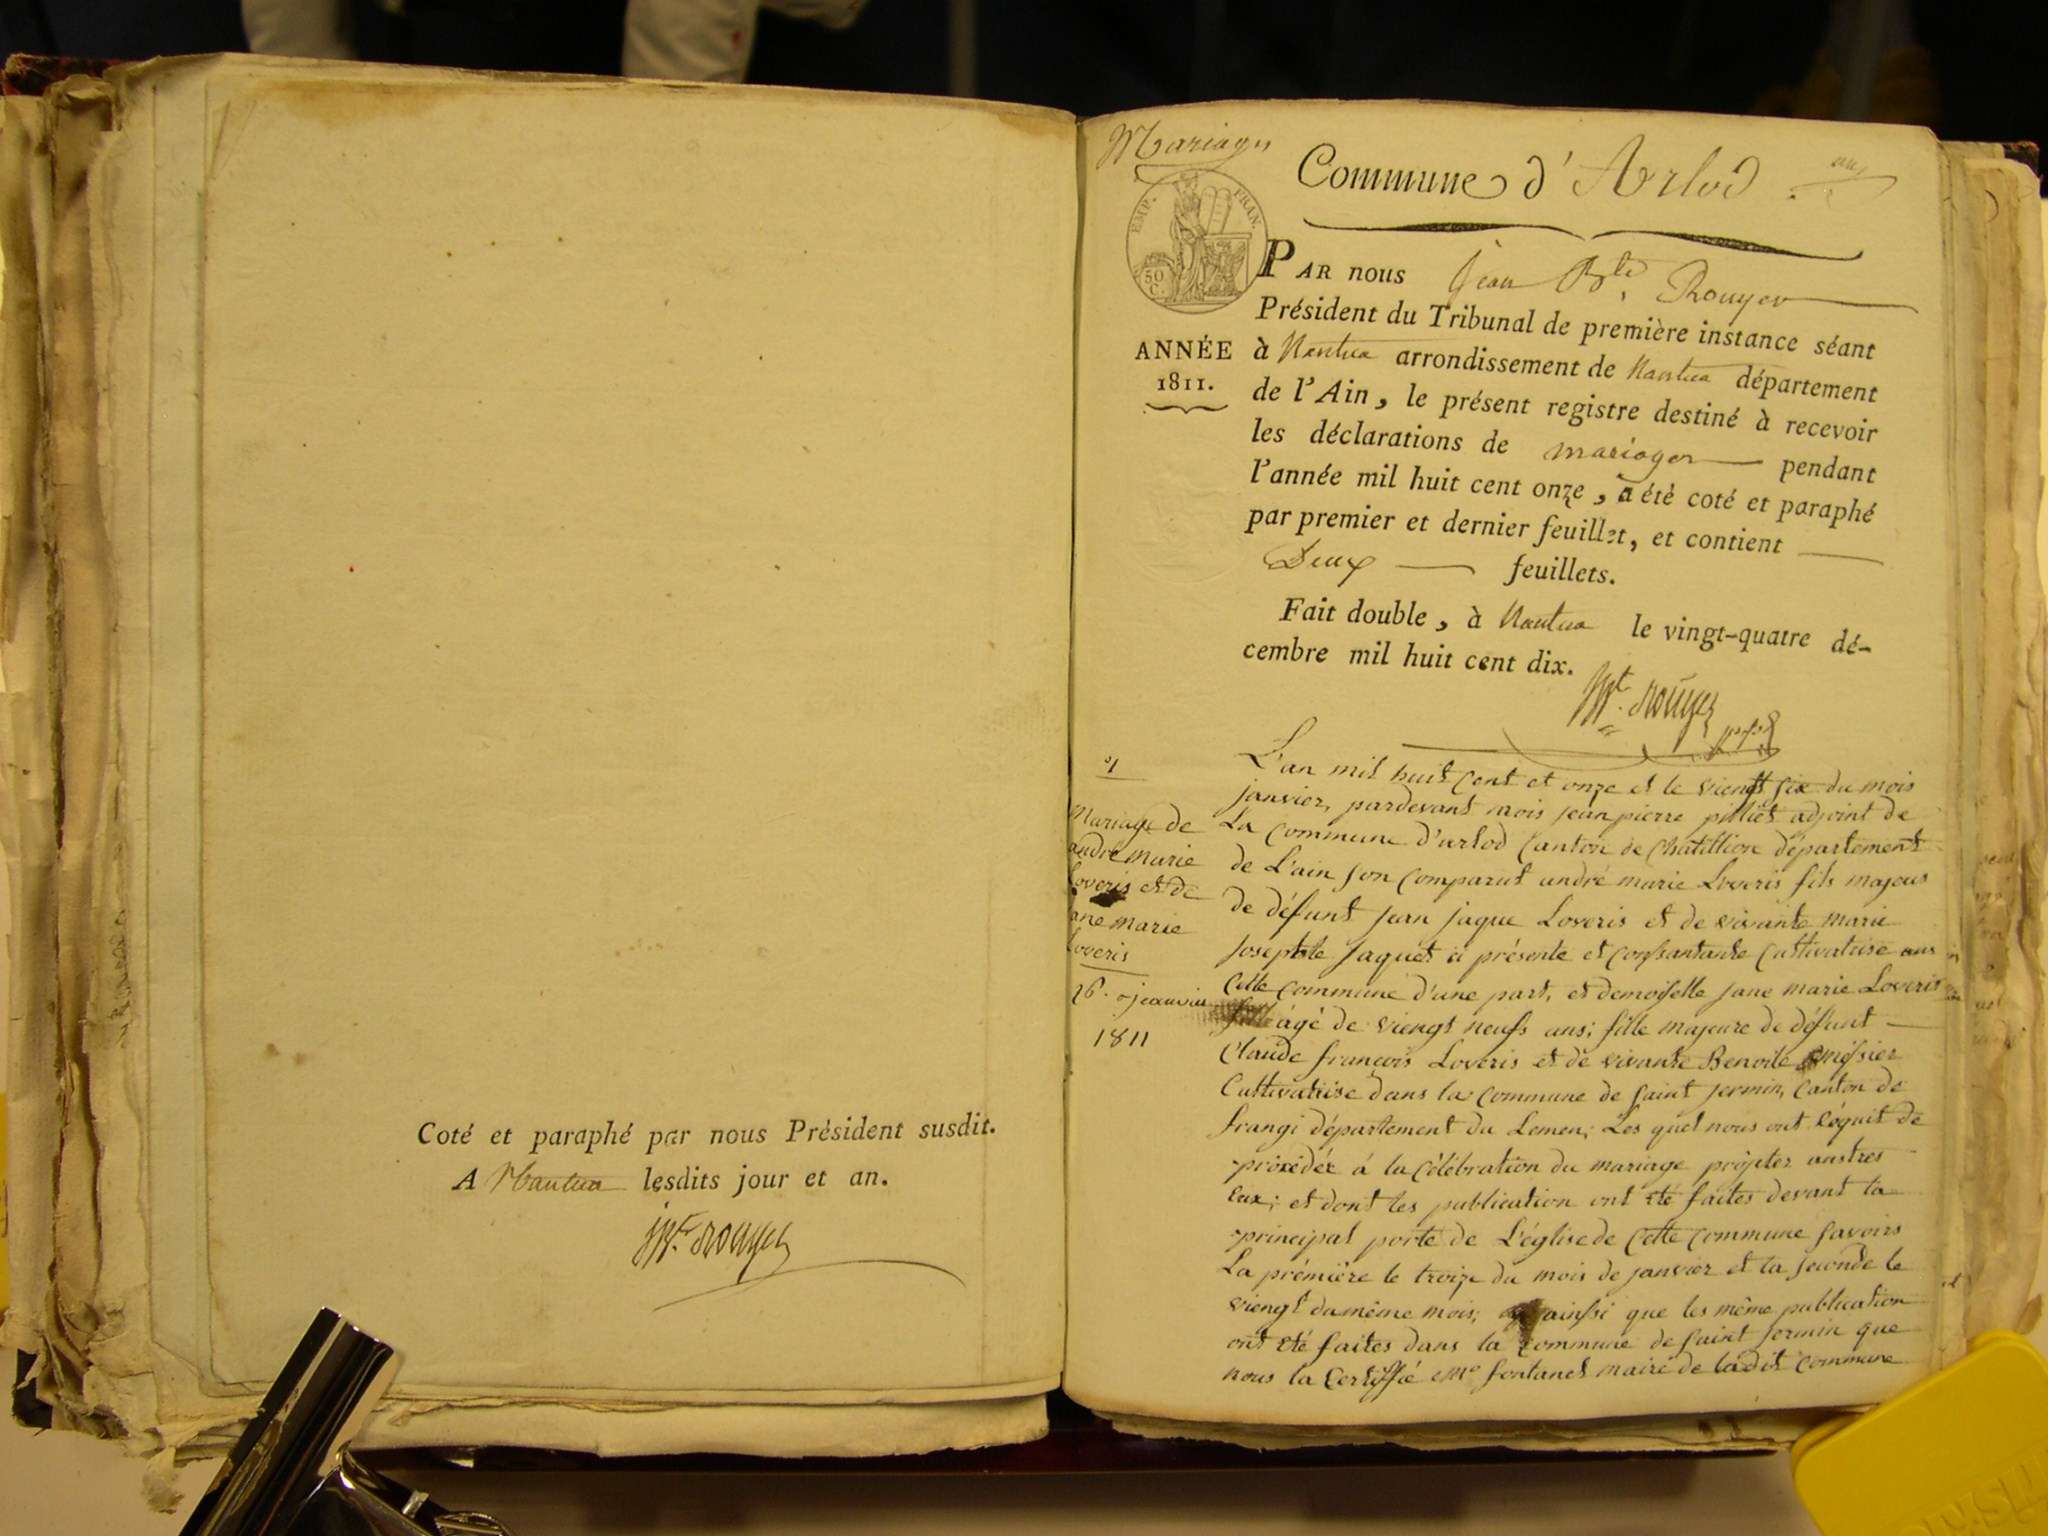 Coté et paraphé par nous Président susdit.
A Nantua lesdits jour et an.
Mariages
Commune d'Arlod
EMP. FRAN.
50 C.
ANNÉE
1811.
PAR nous Jean Bte. Rouyer
Président du Tribunal de première instance séant
à Nantua arrondissement de Nantua département
de l'Ain, le présent registre destiné à recevoir
les déclarations de mariages pendant
l'année mil huit cent onze, a été coté et paraphé
par premier et dernier feuillet, et contient
Deux feuillets.
Fait double, à Nantua le vingt-quatre dé-
cembre mil huit cent dix.
Mariage de
andré marie
Loveris et de
ane marie
Loveris
26. janvier
1811
L'an mil huit cent et onze et le viengt six du mois
janvier, pardevant nois jean pierre pilliet adjoint de
La commune d'arlod Canton de Chatillion département
de L'ain son comparut andré marie Loveris fils majeur
de défunt jean jaque Loveris et de vivante marie
josephte jaquet ci présente et consantante Cultivatrise
Cette commune d'une part, et demoiselle jane marie Loveris
agé de viengt neufs ans; fille majeure de défunt
Claude françois Loveris et de vivante Benoite
Cultivatrise dans la commune de saint jermin, Canton de
frangi département du Lemen; Les quel nous ont réquit de
procédér á la célébration du mariage projeter anstres
Eux; et dont les publication ont été faites devant la
principal porte de L'église de Cette commune savoirs
La prémiére le treize du mois de janvier et la seconde le
viengt du même mois; ainssi que les même publication
ont été faites dans la commune de saint jermin que
nous la Certiffié Mr fontanel maire de ladit commune